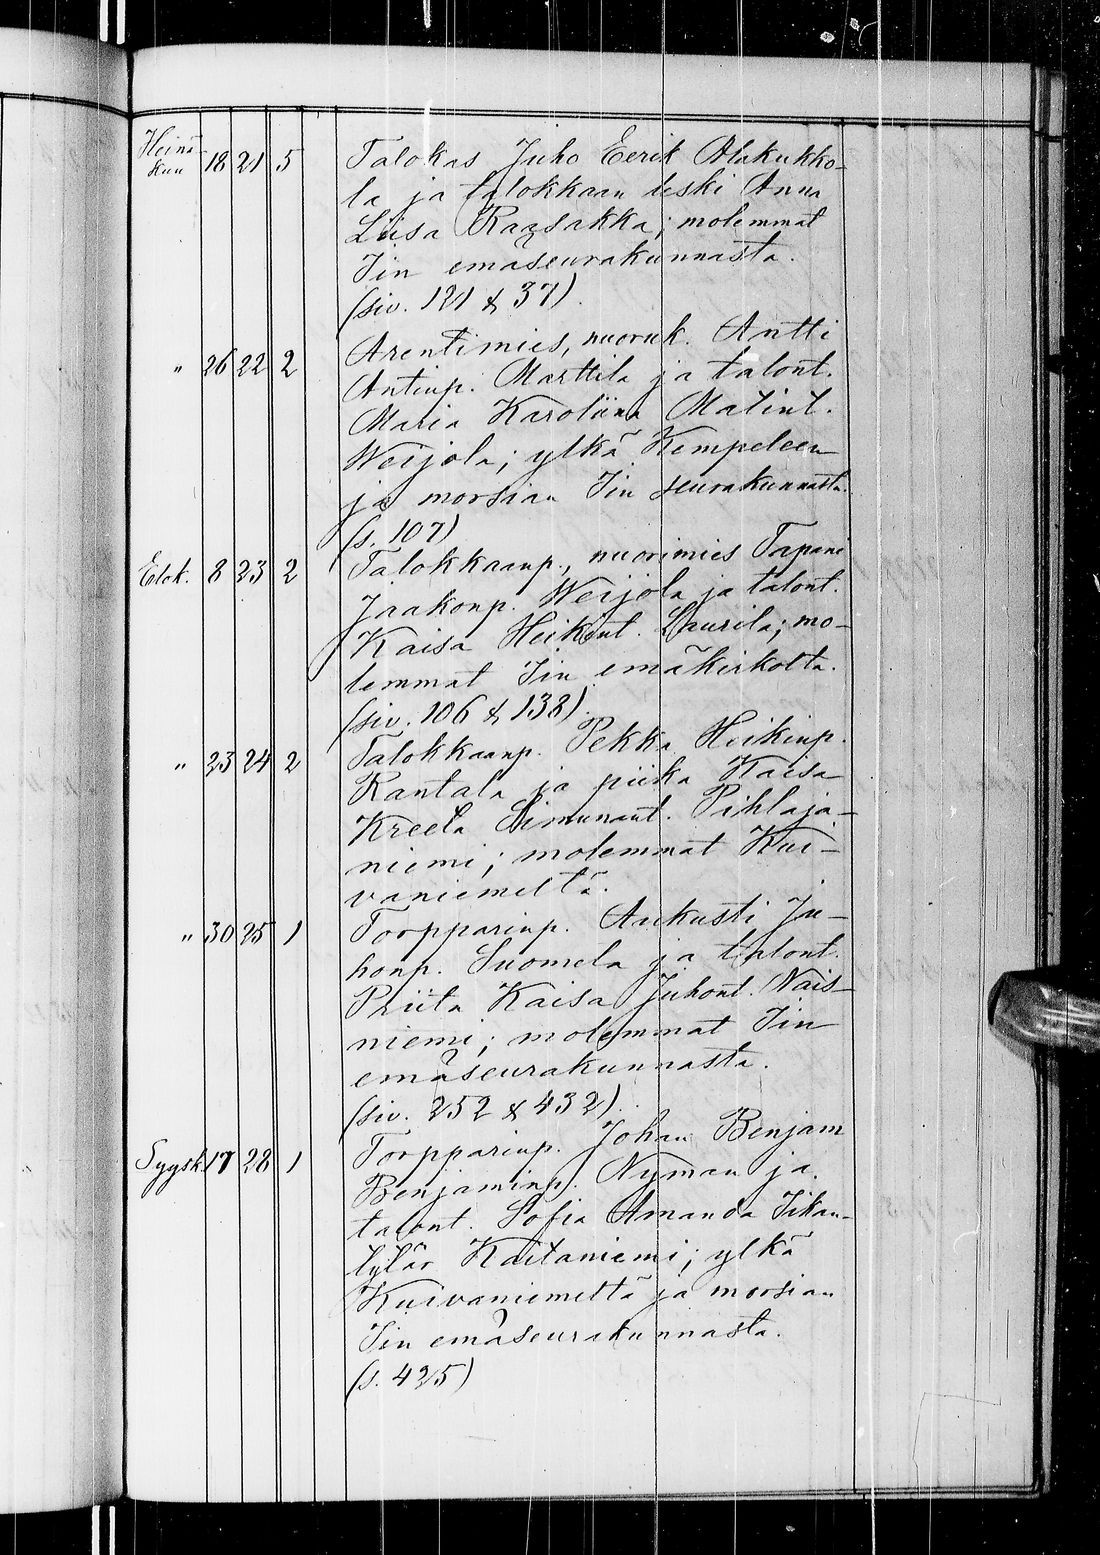 Heinä-
kuu 18 21 5 Talokas Juho Eerik Alakukko-
la ja talokkaan leski Anna
Liisa Raasakka; molemmat
Iin emäseurakunnasta.
(siv. 121 & 37).
" 26 22 2 Arentimies, nuoruk. Antti
Antinp. Marttila ja talont.
Maria Karoliina Matint.
Weijola; ylkä Kempeleen
ja morsian Iin seurakunnasta.
(s. 107)
Elok. 8 23 2 Talokkaanp., nuorimies Tapani
Jaakonp. Weijola ja talont.
Kaisa Heikint. Laurila; mo-
lemmat Iin emäkirkolta.
(siv. 106 & 138).
" 23 24 2 Talokkaanp. Pekka Heikinp.
Rantala ja piika Kaisa
Kreeta Simunant. Pihlaja-
niemi; molemmat Kui-
vaniemeltä.
" 30 25 1 Torpparinp. Aukusti Ju-
honp. Suomela ja talont.
Priita Kaisa Juhont. Näis-
niemi; molemmat Iin
emäseurakunnasta.
(siv. 252 & 432).
Syysk. 17 28 1 Torpparinp. Johan Benjam
Benjaminp. Nyman ja
talont. Sofia Amanda Iikan-
tytär Kaitaniemi; ylkä
Kuivaniemeltä ja morsian
Iin emäseurakunnasta.
(s. 425)